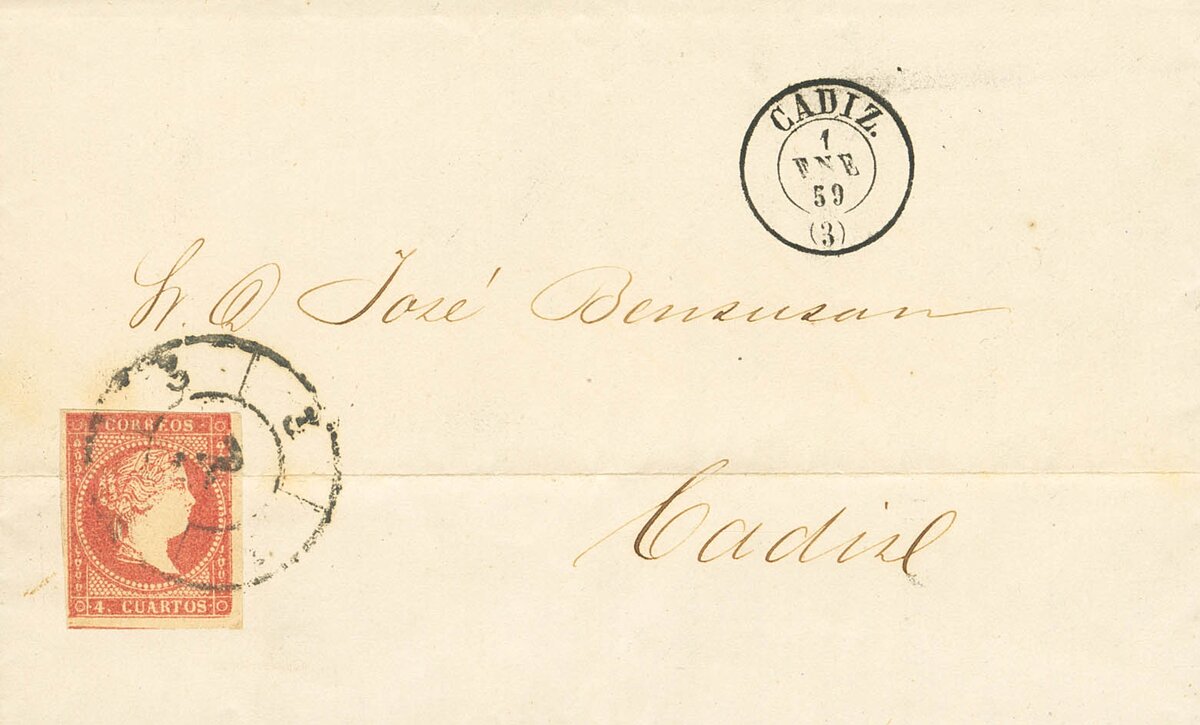 CADIZ.
1
ENE
59
(3)
Sr. D José Bensusan
3
CORREOS
4. CUARTOS
Cadiz